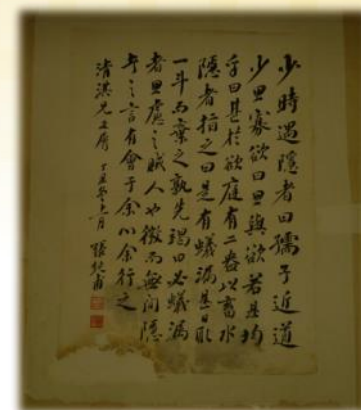 少時遇隱者曰孺子近道
少思寡欲曰思與欲若是均
乎曰甚於欲庭有二盎以畜水
隱者指之曰是有蟻漏是日取
一斗而棄之孰先竭曰必蟻漏
者思慮之賊人也微而無間隱
者之言有會于余心余行之
清淇兄正屬 丁丑 月 張